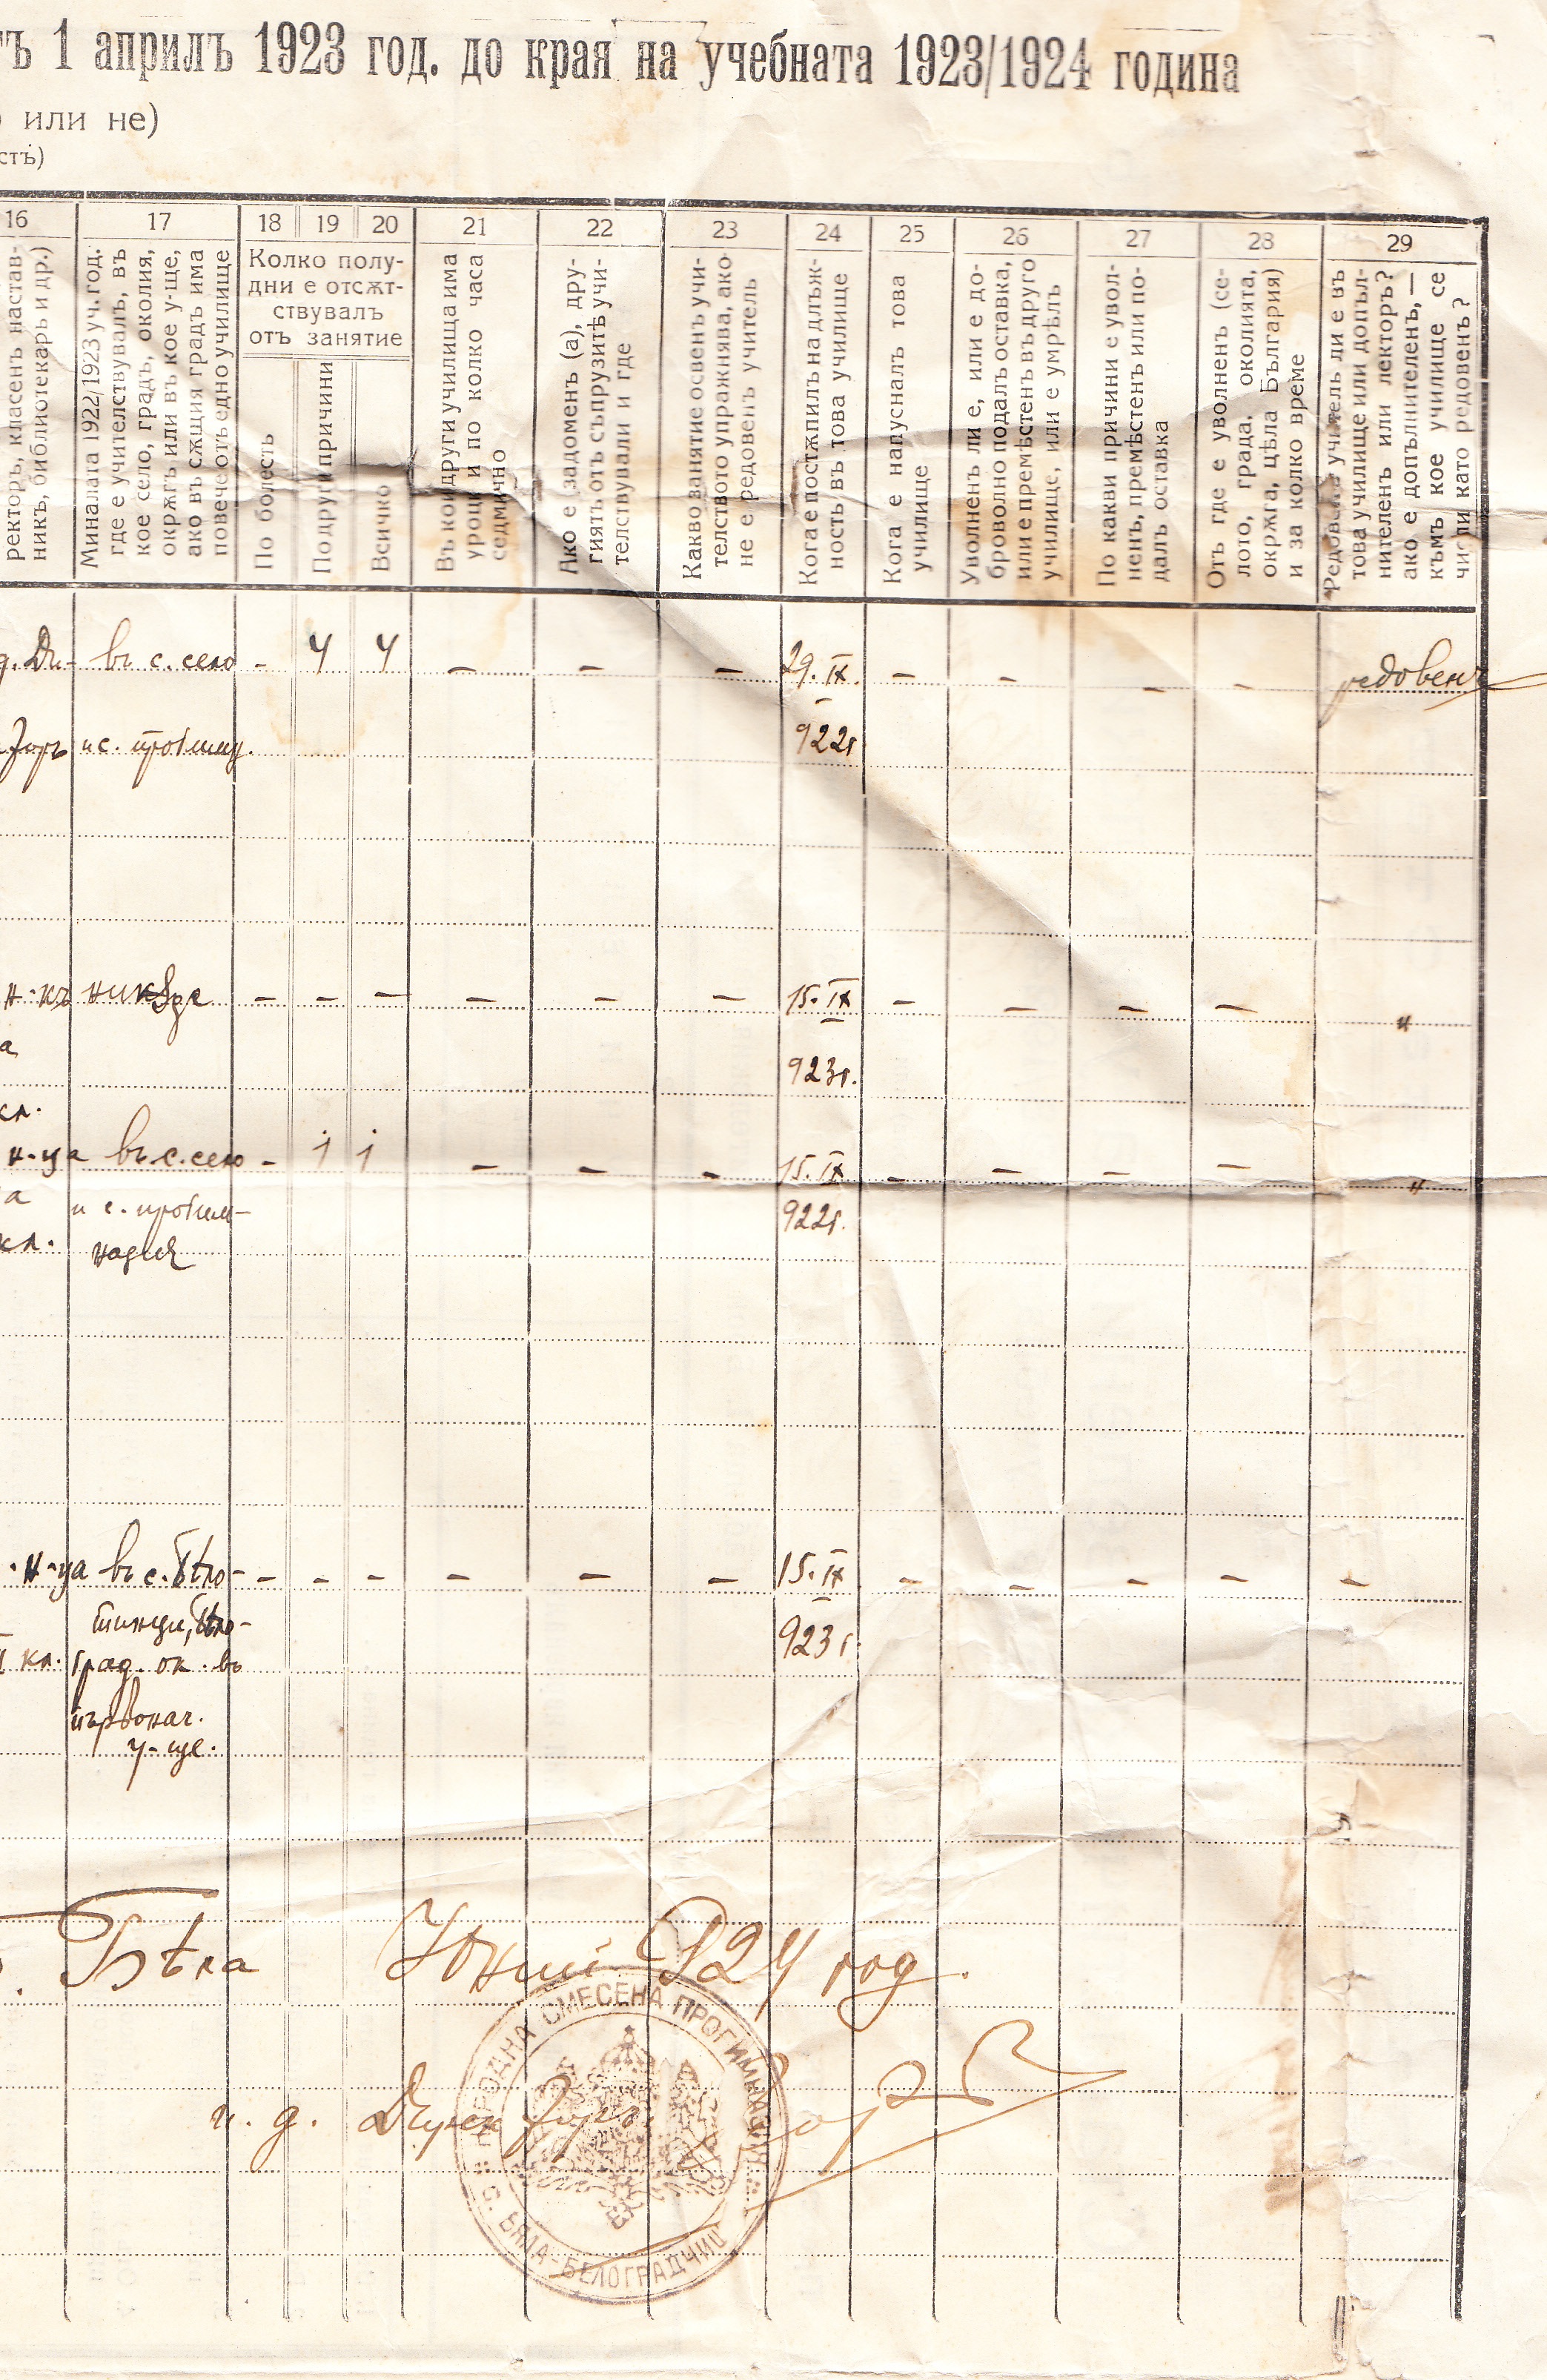 тъ 1 априлъ 1923 год. до края на учебната 1923/1924 година
или не)
сть)
16 17 18 19 20 21 22 23 24 25 26 27 28 29
ректоръ, класенъ настав-
никъ, библиотекарь и др.)
Миналата 1922/1923 уч. год.
где е учителствувалъ, въ
кое село, градъ, околия,
окрѫгъ или въ кое у-ще,
ако въ сѫщия градъ има
повече отъ едно училище
Колко полу-
дни е отсѫт-
ствувалъ
отъ занятие
По болесть
По други причини
Всичко
Въ кои други училища има
уроци и по колко часа
седмично
Ако е задоменъ (а), дру-
гиятъ отъ съпрузитѣ учи-
телствували и где
Какво занятие освенъ учи-
телството упражнява, ако
не е редовенъ учитель
Кога е постѫпилъ на длъж-
ность въ това училище
Кога е напусналъ това
училище
Уволненъ ли е, или е до-
броволно подалъ оставка,
или е премѣстенъ въ друго
училище, или е умрѣлъ
По какви причини е увол-
ненъ, премѣстенъ или по-
далъ оставка
Отъ где е уволненъ (се-
лото, града, околията,
окрѫга, цѣла България)
и за колко време
Редовенъ учитель ли е въ
това училище или допъл-
нителенъ или лекторъ?
ако е допълнителенъ, —
къмъ кое училище се
числи като редовенъ?
въ с. село - 4 4 - - - 29. IX. - - - - редовенъ
и с. прогимн. 922г
н-къ никѫде - - - - - - 15. IX - - - - "
а 923г.
кл.
н-ца въ с. село - 1 1 - - - 15. IX - - - - "
а и с. прогим- 922г.
кл. назия
н-ца въ с. Бѣло- - - - - - - 15. IX - - - - -
тинци, Бѣло- 923г.
кл. град. ок. въ
първонач.
у-ще.
Бѣла Юний 924 год.
и. д. Директоръ:
НАРОДНА СМЕСЕНА ПРОГИМНАЗИЯ
С. БѢЛА-БЕЛОГРАДЧИШ